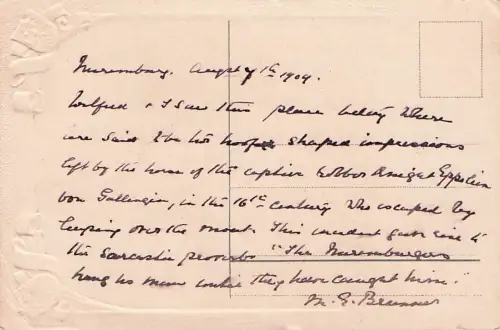 Nuremburg. August 7th 1909.
Wilfred & I saw this place today where
are said to be two hoof shaped impressions
left by the horse of the captive robber knight Eppelein
von Gallingen, in the 16th century who escaped by
leaping over the moat. This incident gave rise to
the sarcastic proverb "The Nuremburgers
hang no man unless they have caught him."
M. E. Brunner